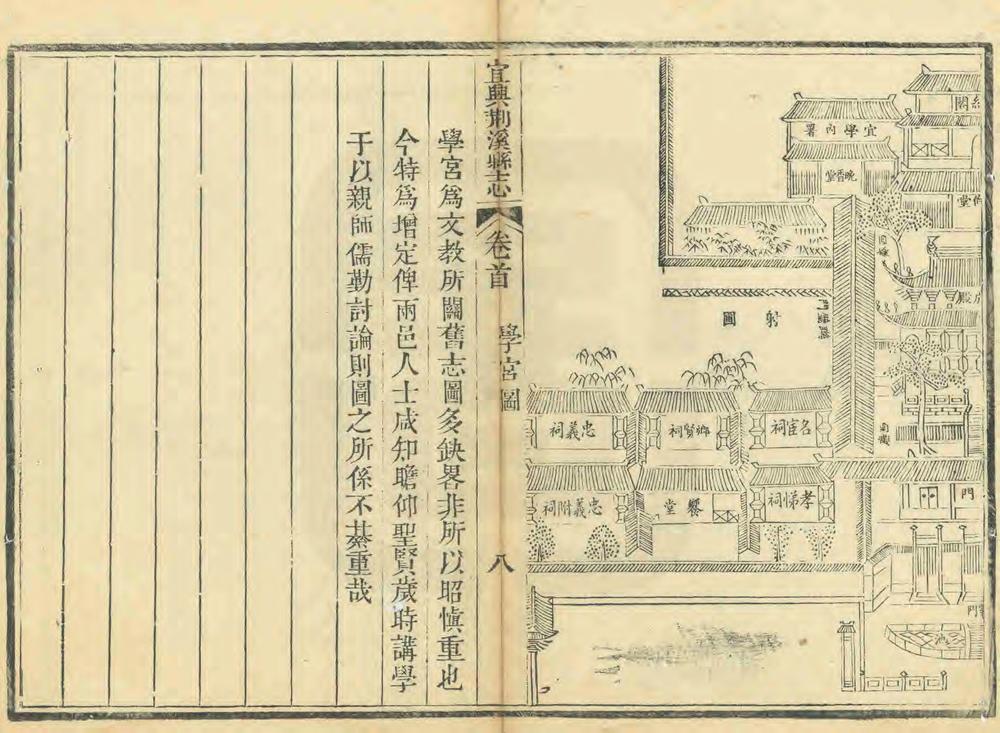 閣
宜學內署
晚香堂
堂
殿
射圃
名宦祠
鄉賢祠
忠義祠
孝悌祠
饗堂
忠義附祠
門
門
池
宜興荆溪縣志
卷首
學宮圖
八
學宮爲文教所關舊志圖多缺畧非所以昭慎重也
今特爲增定俾兩邑人士咸知瞻仰聖賢歲時講學
于以親師儒勤討論則圖之所係不綦重哉